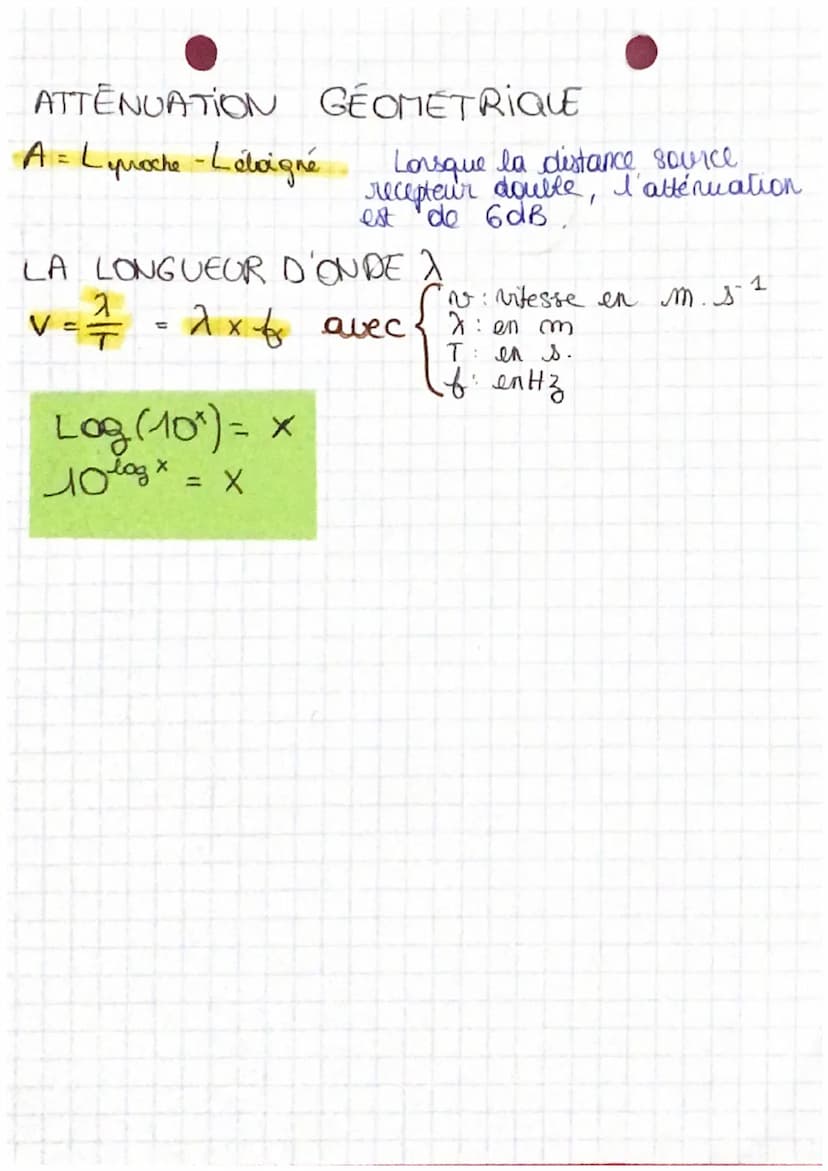 ATTÉNUATION GÉOMÉTRIQUE
A = Lproche - Léloigné
Lorsque la distance source
recepteur double, l'atténuation
est de 6dB.
LA LONGUEUR D'ONDE λ
V = λ/T = λ x f avec
v : vitesse en m.s⁻¹
λ : en m
T : en s.
f : en Hz
Log(10ˣ) = x
10^log x = x